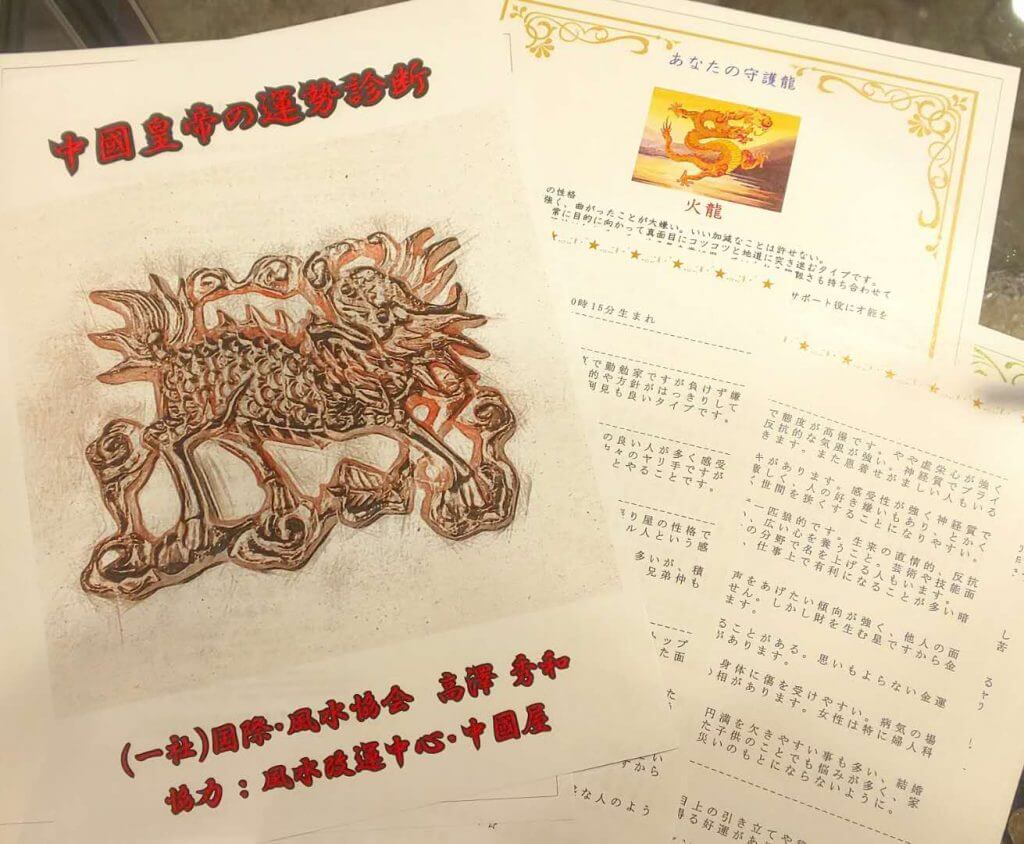 中國皇帝の運勢診断
(一社)国際・風水協会 高澤 秀和
協力:風水改運中心・中國屋
あなたの守護龍
火龍
の性格
強く、曲がったことが大嫌い。いい加減なことは許せない。
常に目的に向かって真面目にコツコツと地道に突き進むタイプです。
さも持ち合わせて
サポート役に才能を
0時15分生まれ
で勤勉家ですが負けず嫌
的や方針がはっきりして
見も良いタイプです。
の良い人が多く感受
々のヤリ手です。
とやることが
り屋の性格で
ル人という感
多いが、積も
兄弟仲も
ップ
た面
いら
すから
な人のよう
で態度が高慢です。やや虚栄心が強く
反抗的な気風が強い。神経質でプライ
きます。また恩着せがましい人もいる
があります。感受性が強く神経質で
しく、人の好き嫌いもあり、とかく
世間を狭くすることになりやすい。
一匹狼的です。生来の直情的、反抗
広い心を養うこと。芸術や技能面
の分野で名を上げる人もいます。
仕事上で有利になることが多い暗
声をあげたい傾向が強く、他人の面
せん。しかし財を生む星ですから金
ます。
ることがある。思いもよらない金運
があります。
身体に傷を受けやすい。病気の場
相があります。女性は特に婦人科
円満を欠きやすい事も多い、結婚
た子供のことでも悩みが多く、家
災いのもとにならないように。
上の引き立てや
得る好運があ
し苦
るヤリ
!